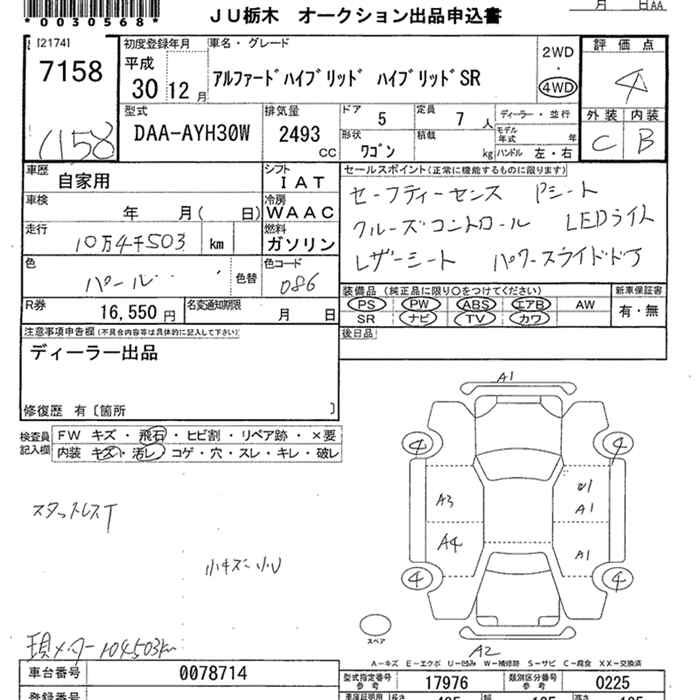 *0030568*
JU栃木 オークション出品申込書
月 日AA
[2174]
7158
初度登録年月
平成
30 12 月
車名・グレード
アルファードハイブリッド ハイブリッドSR
2WD
・
4WD
評価点
4
外装 内装
C B
7158
型式
DAA-AYH30W
排気量
2493 CC
ドア
5
定員
7 人
ディーラー・並行
形状
ワゴン
積載
kg
モデル年式 年
ハンドル 左・右
車歴
自家用
シフト
IAT
セールスポイント(正常に機能するものに限ります)
セーフティーセンス Pシート
クルーズコントロール LEDライト
レザーシート パワースライドドア
車検
年 月( 日)
冷房
WAAC
走行
10万4千503 km
燃料
ガソリン
色
パール
色替
色コード
086
装備品(純正品に限り○をつけてください)
新車保証書
PS PW ABS エアB AW
有・無
SR ナビ TV カワ
R券
16,550 円
名変通知期限
月 日
後日品
注意事項申告欄(不具合内容等は具体的に記入して下さい)
ディーラー出品
修復歴 有〔箇所 〕
検査員記入欄
FW キズ・飛石・ヒビ割・リペア跡・×要
内装 キズ・汚レ・コゲ・穴・スレ・キレ・破レ
スタットレスT
小キズ小U
現メーター104503km
A1
4 4
A3
A1
A4
A1
4 4
スペア
A2
A-キズ E-エクボ U-凹み W-補修跡 S-サビ C-腐食 XX-交換済
車台番号
0078714
型式指定番号
参考
17976
類別区分番号
参考
0225
登録番号